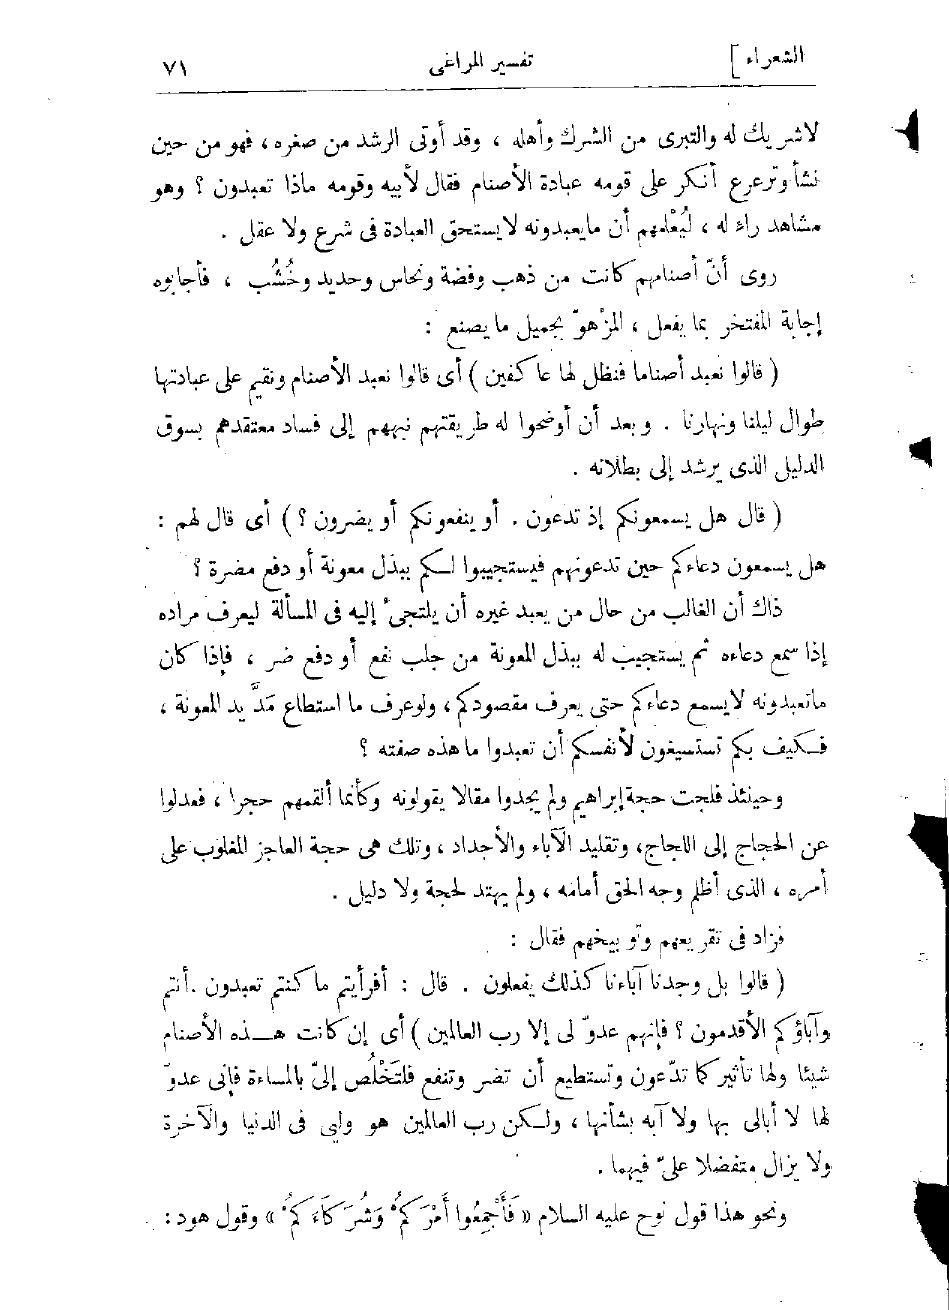 الشعراء ]
تفسير المراغى
٧١
لاشريك له والتبرى من الشرك وأهله ، وقد أوتى الرشد من صغره ، فهو من حين
نشأ وترعرع أنكر على قومه عبادة الأصنام فقال لأبيه وقومه ماذا تعبدون ؟ وهو
مشاهد راء له ، ليُعْلمهم أن مايعبدونه لايستحق العبادة فى شرع ولا عقل .
روى أنّ أصنامهم كانت من ذهب وفضة ونحاس وحديد وخُشُب ، فأجابوه
إجابة المفتخر بما يفعل ، المزْهوّ بجميل ما يصنع :
( قالوا نعبد أصناما فنظل لها عاكفين ) أى قالوا نعبد الأصنام ونقيم على عبادتها
طوال ليلنا ونهارنا . وبعد أن أوضحوا له طريقتهم نبههم إلى فساد معتقدهم بسوق
الدليل الذى يرشد إلى بطلانه .
( قال هل يسمعونكم إذ تدعون . أو ينفعونكم أو يضرون ؟ ) أى قال لهم :
هل يسمعون دعاءكم حين تدعونهم فيستجيبوا لـكم ببذل معونة أو دفع مضرة ؟
ذاك أن الغالب من حال من يعبد غيره أن يلتجئ إليه فى المسألة ليعرف مراده
إذا سمع دعاءه ثم يستجيب له ببذل المعونة من جلب نفع أو دفع ضر ، فإذا كان
ماتعبدونه لايسمع دعاءكم حتى يعرف مقصودكم ، ولوعرف ما استطاع مَدَّ يد المعونة ،
فـكيف بكم تستسيغون لأنفسكم أن تعبدوا ما هذه صفته ؟
وحينئذ فلجت حجة إبراهيم ولم يجدوا مقالا يقولونه وكأنما ألقمهم حجرا ، فعدلوا
عن الحجاج إلى اللجاج، وتقليد الآباء والأجداد ، وتلك هى حجة العاجز المغلوب على
أمره ، الذى أظلم وجه الحق أمامه ، ولم يهتد لحجة ولا دليل .
فزاد فى تقريعهم وتوبيخهم فقال :
( قالوا بل وجدنا آباءنا كذلك يفعلون . قال : أفرأيتم ما كنتم تعبدون . أنتم
وآباؤكم الأقدمون ؟ فإنهم عدوّ لى إلا رب العالمين ) أى إن كانت هـــذه الأصنام
شيئا ولها تأثير كما تدّعون وتستطيع أن تضر وتنفع فلتَخْلُص إلىّ بالمساءة فإنى عدوّ
لها لا أبالى بها ولا آبه بشأنها ، ولـكن رب العالمين هو وليى فى الدنيا والآخرة
ولا يزال متفضلا علىّ فيهما .
ونحو هذا قول نوح عليه السلام « فَأَجْمِعُوا أَمْرَكُمْ وَشُرَكَاءَكُمْ » وقول هود :